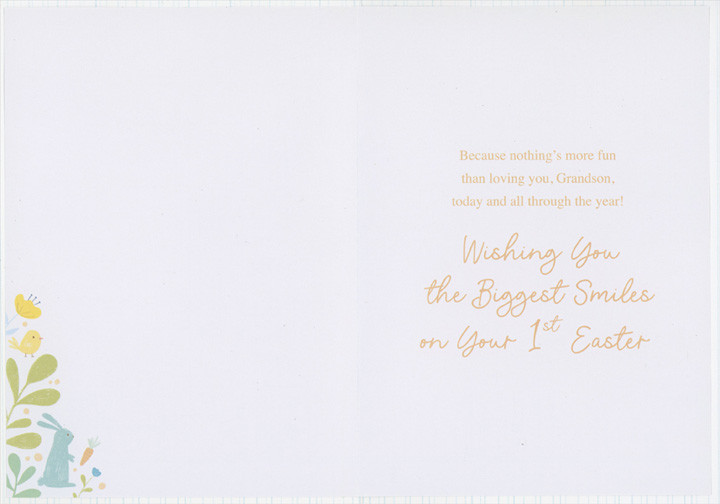 Because nothing's more fun
than loving you, Grandson,
today and all through the year!
Wishing You
the Biggest Smiles
on Your 1st Easter